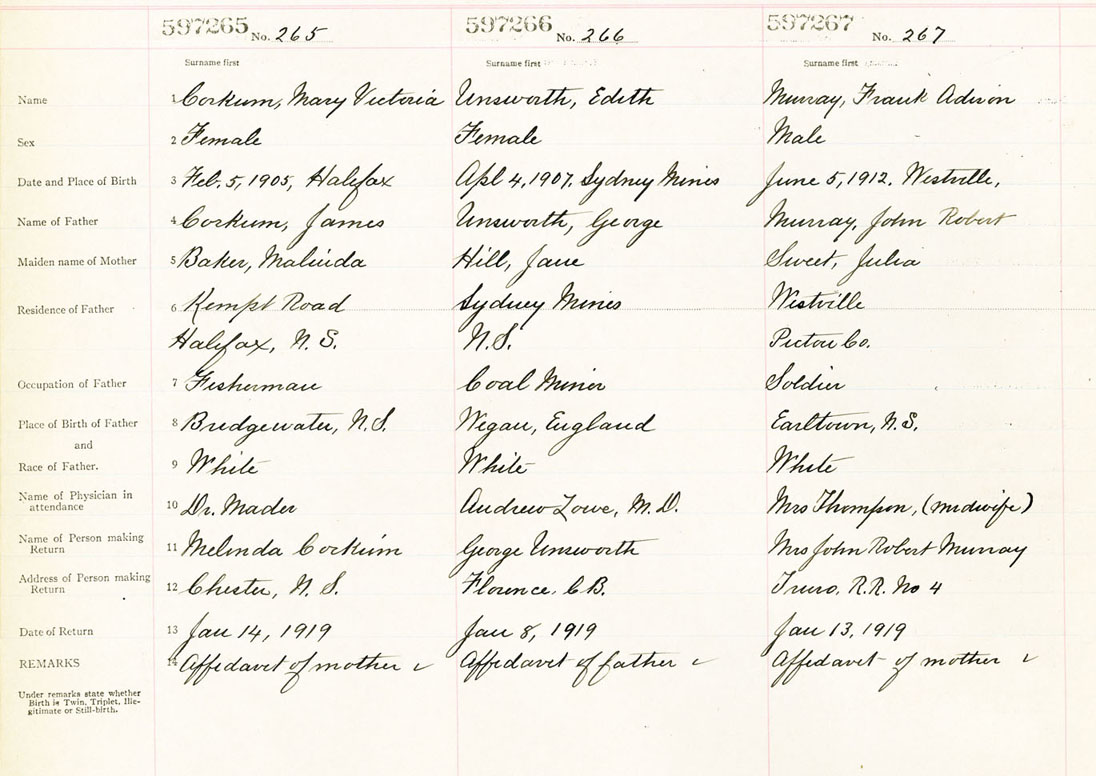 597265 No. 265 597266 No. 266 597267 No. 267
Surname first Surname first Surname first
Name 1 Corkum, Mary Victoria Unsworth, Edith Murray, Frank Adison
Sex 2 Female Female Male
Date and Place of Birth 3 Feb. 5, 1905, Halifax Apl 4, 1907, Sydney Mines June 5, 1912. Westville,
Name of Father 4 Corkum, James Unsworth, George Murray, John Robert
Maiden name of Mother 5 Baker, Malinda Hill, Jane Sweet, Julia
Residence of Father 6 Kempt Road Sydney Mines Westville
Halifax, N.S. N.S. Pictou Co.
Occupation of Father 7 Fisherman Coal Miner Soldier
Place of Birth of Father 8 Bridgewater, N.S. Wegan, England Earltown, N.S.
and
Race of Father. 9 White White White
Name of Physician in
attendance 10 Dr. Mader Andrew Lowe, M.D. Mrs Thompson, (midwife)
Name of Person making
Return 11 Melinda Corkum George Unsworth Mrs John Robert Murray
Address of Person making
Return 12 Chester, N.S. Florence. C.B. Truro. R.R. No 4
Date of Return 13 Jan 14, 1919 Jan 8, 1919 Jan 13, 1919
REMARKS 14 Affedavet of mother Affedavet of father Affedavet of mother
Under remarks state whether
Birth is Twin, Triplet, Ille-
gitimate or Still-birth.